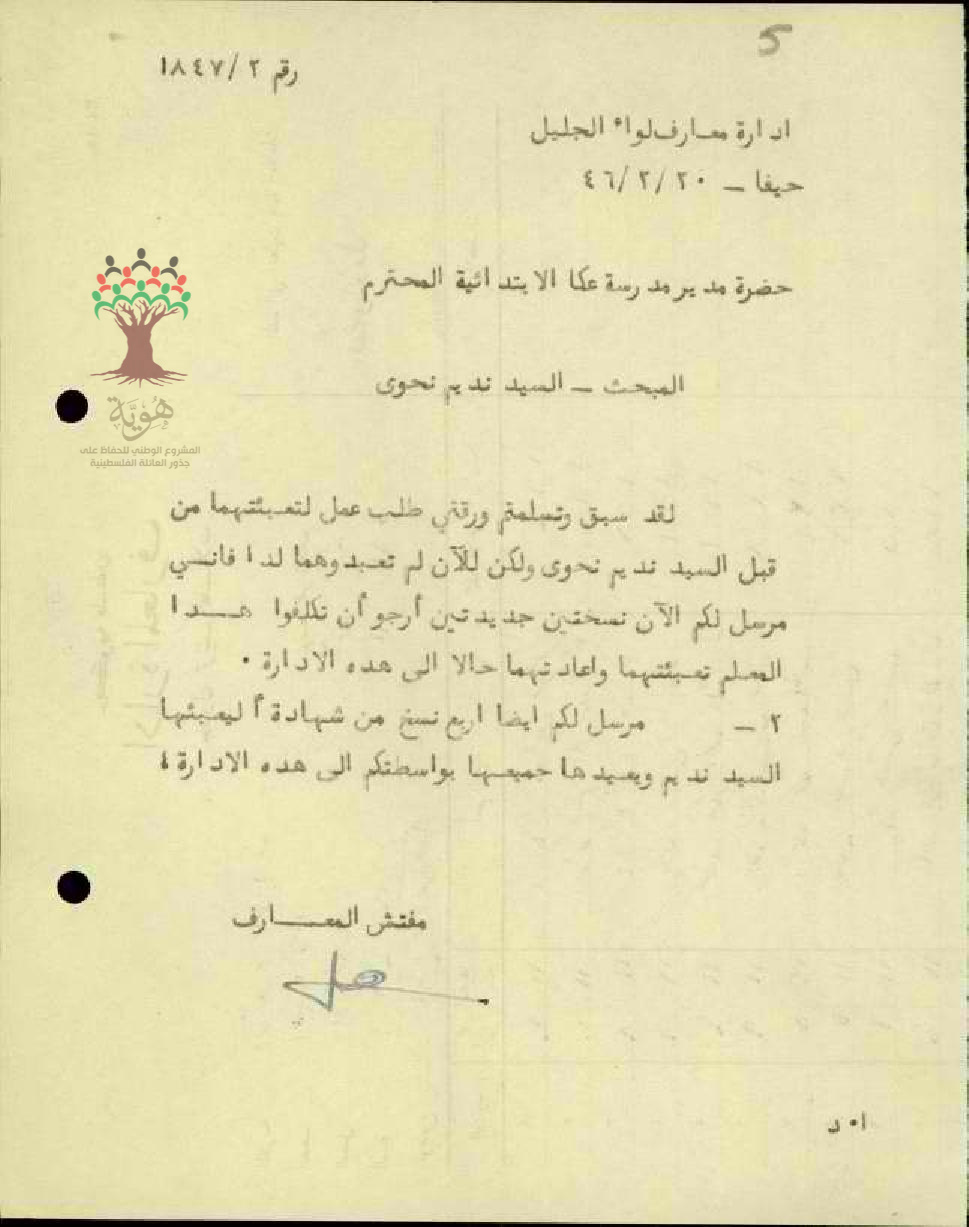 5
رقم ٢/ ١٨٤٧
ادارة معارف لواء الجليل
حيفا – ٢٠ /٢/ ٤٦
حضرة مدير مدرسة عكا الابتدائية المحترم
هُويَّة
المشروع الوطني للحفاظ على
جذور العائلة الفلسطينية
المبحث – السيد نديم نحوى
لقد سبق وتسلمتم ورقتي طلب عمل لتعبئتهما من
قبل السيد نديم نحوى ولكن للآن لم تعيدوهما لدا فانسي
مرسل لكم الآن نسختين جديدتين أرجو أن تكلفوا هـــدا
المعلم تعبئتهما واعادتهما حالا الى هده الادارة .
٢ – مرسل لكم ايضا اربع نسخ من شهادة أ ليعبئها
السيد نديم ويعيدها جميعها بواسطتكم الى هده الادارة ؛
مفتش المعـــارف
ا. د